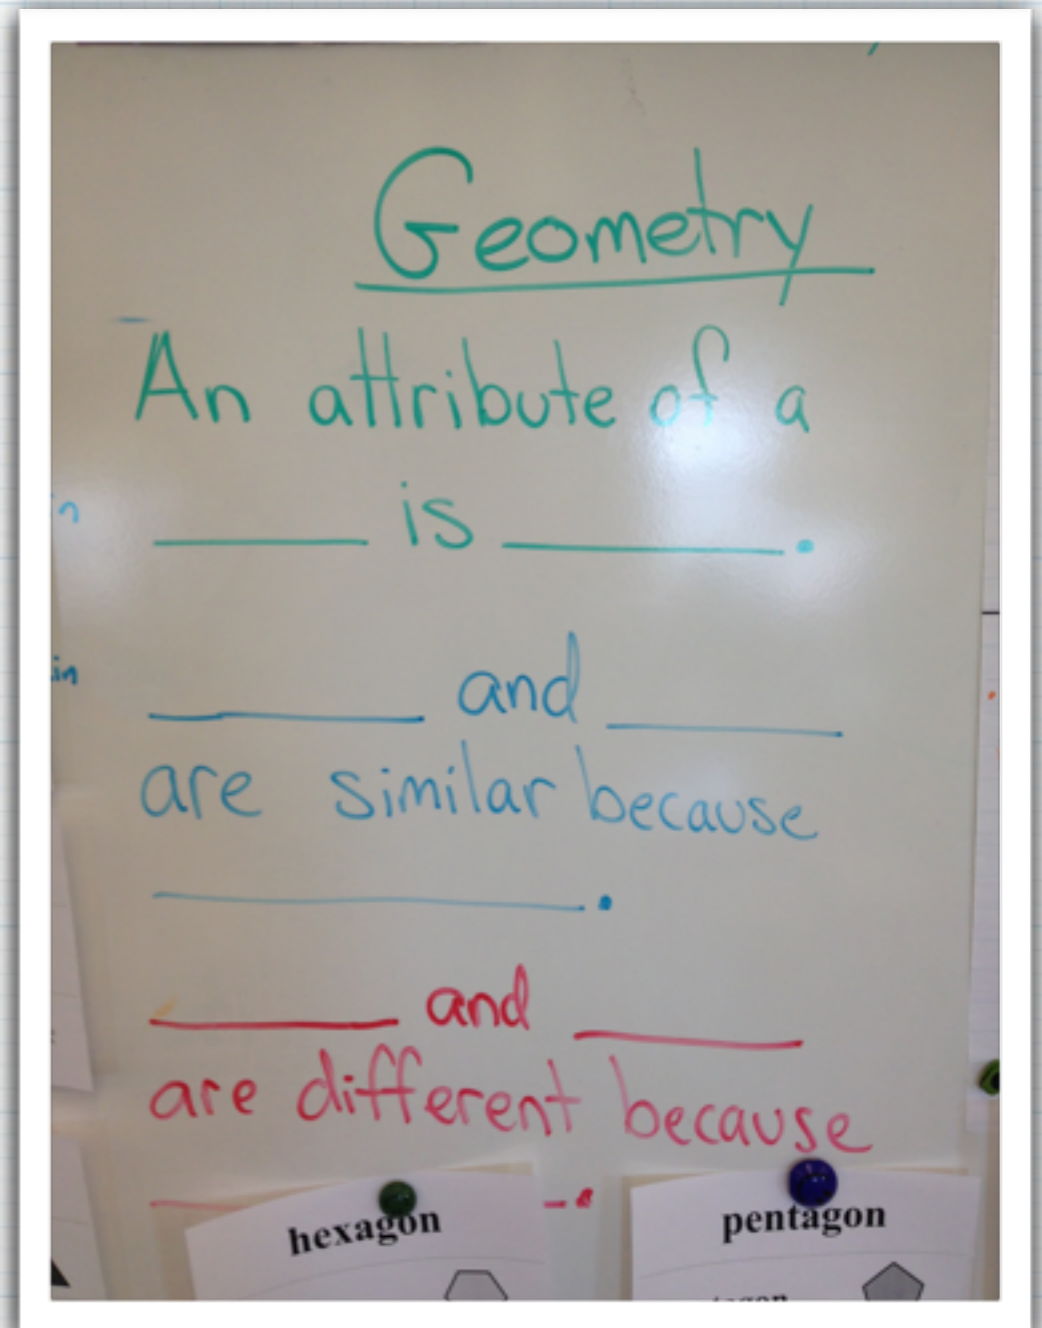 Geometry
An attribute of a
____ is ____.
____ and ____
are similar because
____.
____ and ____
are different because
____.
hexagon
pentagon